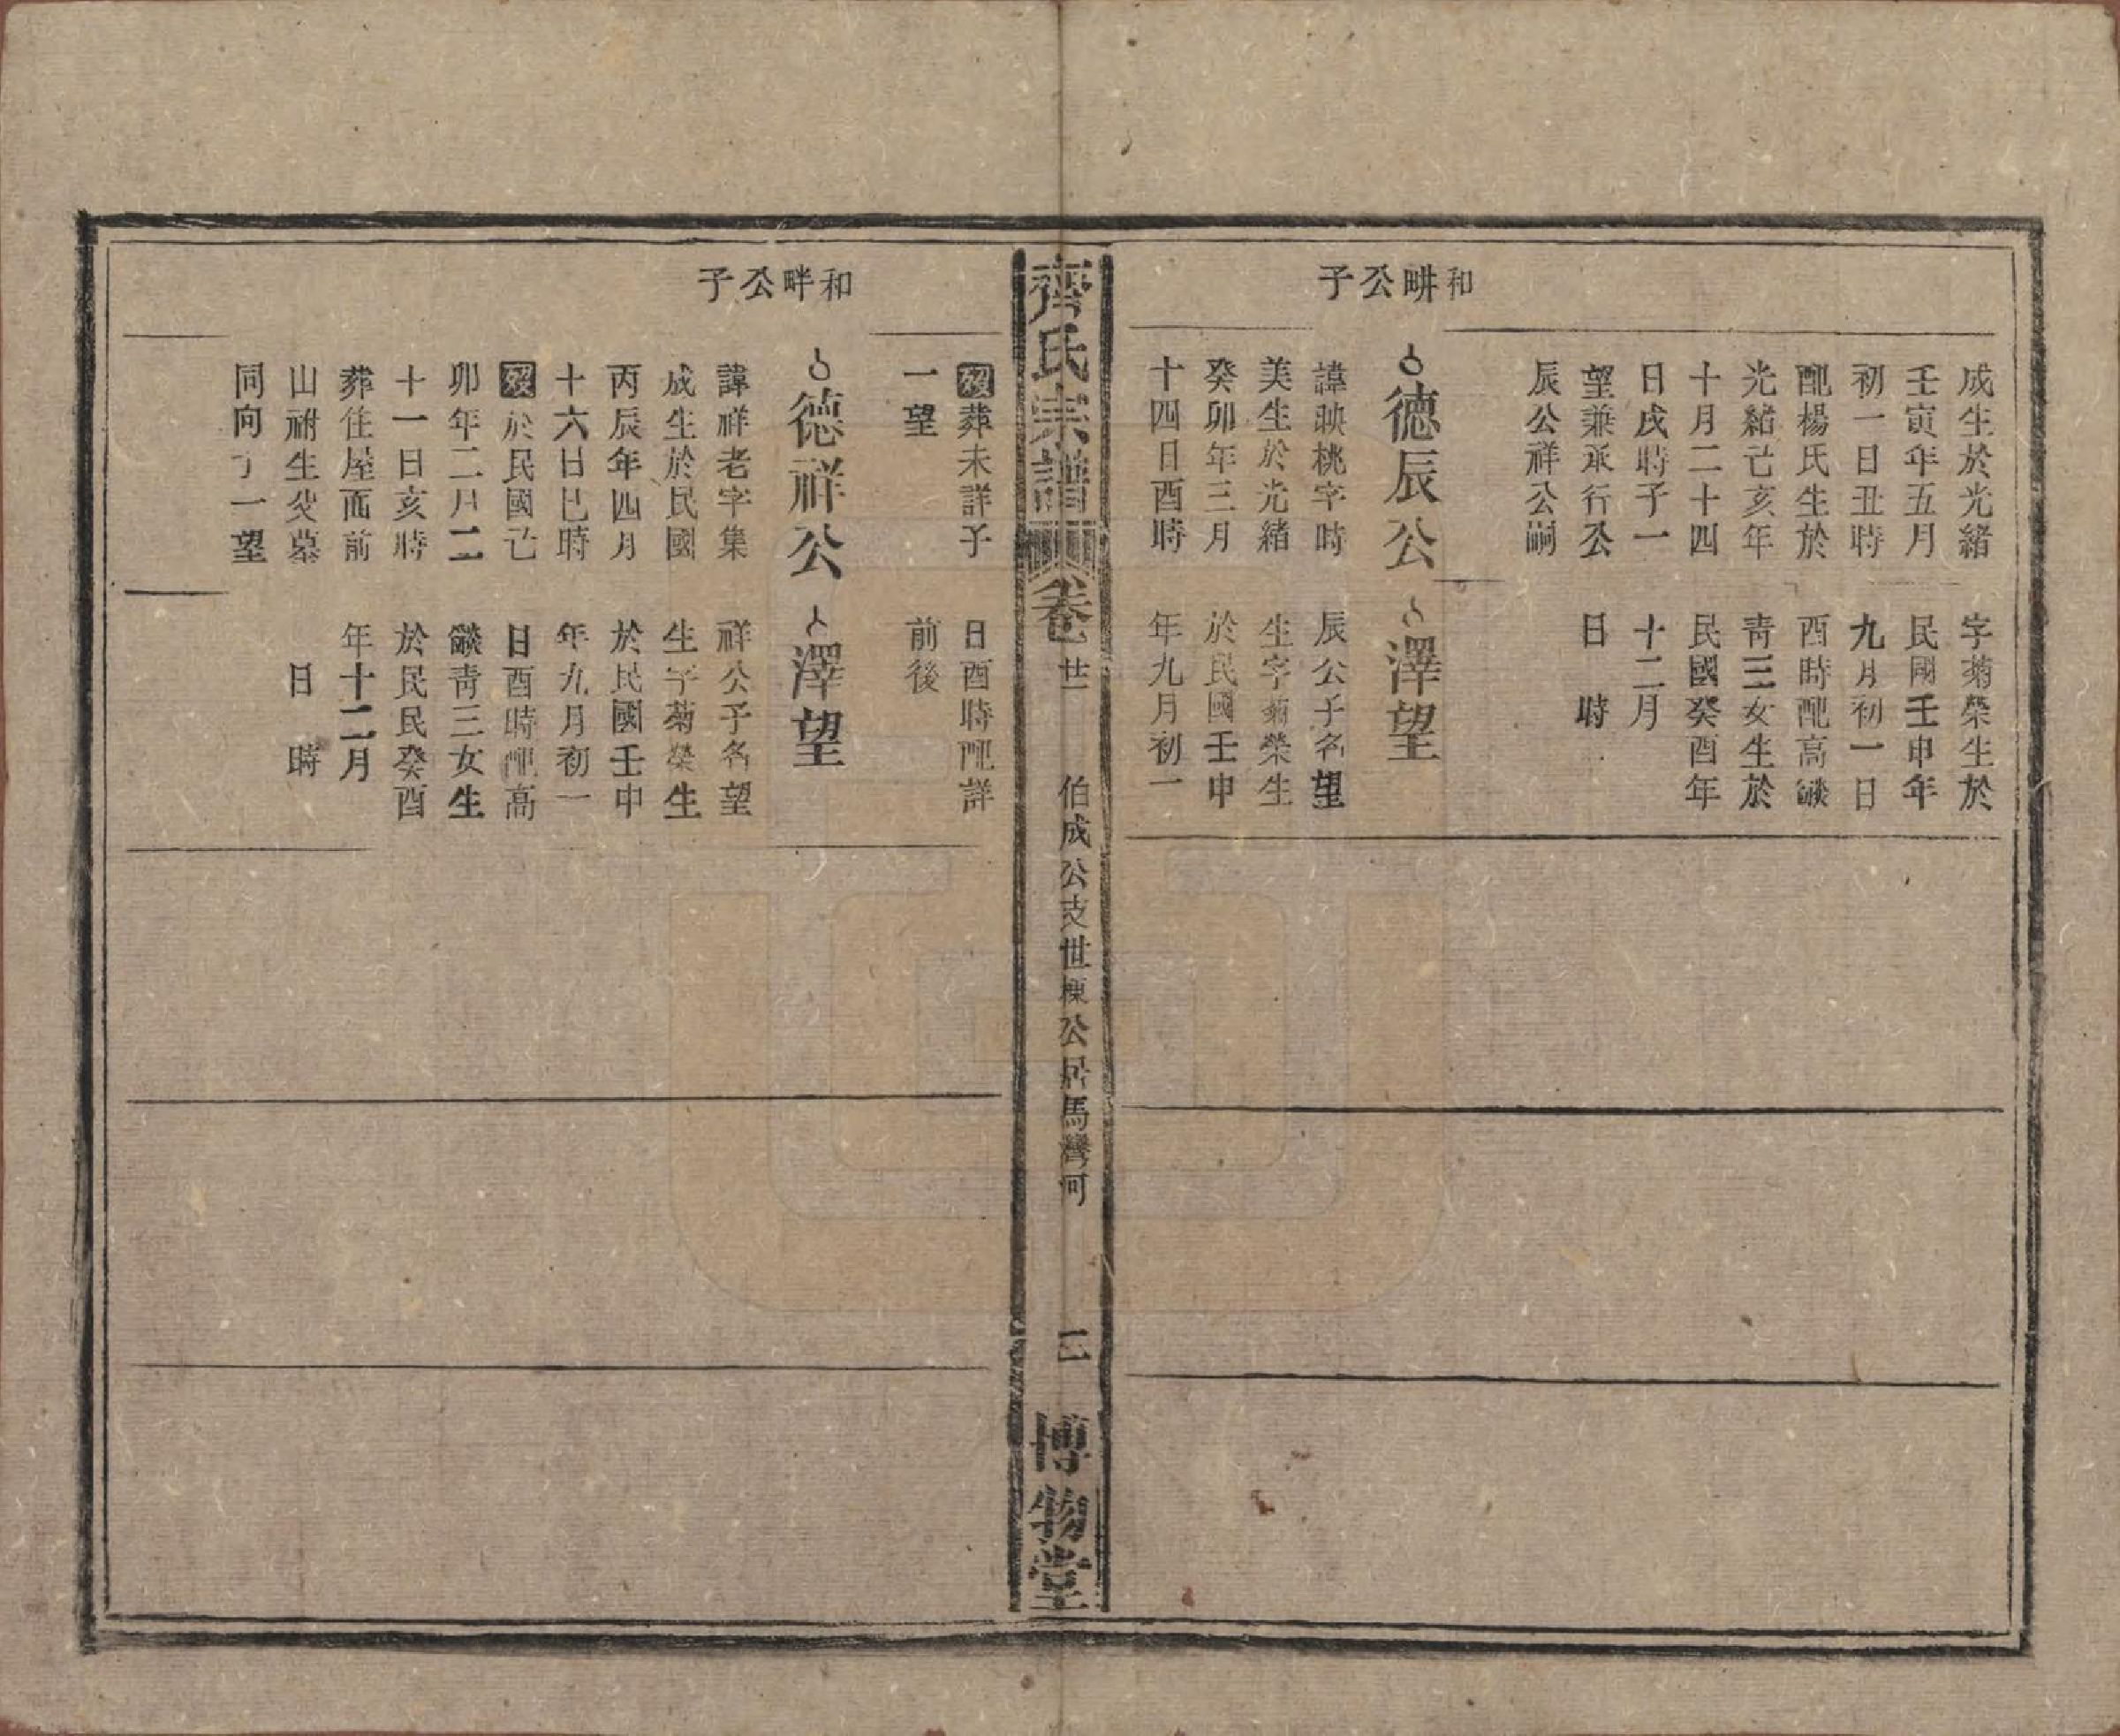 成生於光緒
壬寅年五月
初一日丑時
配楊氏生於
光緒己亥年
十月二十四
日戌時子一
望兼承行公
辰公祥公嗣
字菊榮生於
民國壬申年
九月初一日
酉時配高燄
靑三女生於
民國癸酉年
十二月
日　時
和畊公子
德辰公
諱映桃字時
美生於光緒
癸卯年三月
十四日酉時
澤望
辰公子名望
生字菊榮生
於民國壬申
年九月初一
齊氏宗譜
卷廿一
伯成公支世棟公居馬灣河
二
博物堂
歿葬未詳子
一望
日酉時配詳
前後
和畔公子
德祥公
諱祥老字集
成生於民國
丙辰年四月
十六日巳時
歿於民國己
卯年二月二
十一日亥時
葬住屋面前
山祔生父墓
同向子一望
澤望
祥公子名望
生字菊榮生
於民國壬申
年九月初一
日酉時配高
燄靑三女生
於民民癸酉
年十二月
日　時